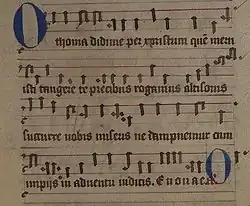 O
thoma didime per xpristum quē meru
isti tangere te precibus rogamus altisonis
succurre nobis miseris ne dampnemur cum
impijs in adventu iudicis. E u o u a e. O